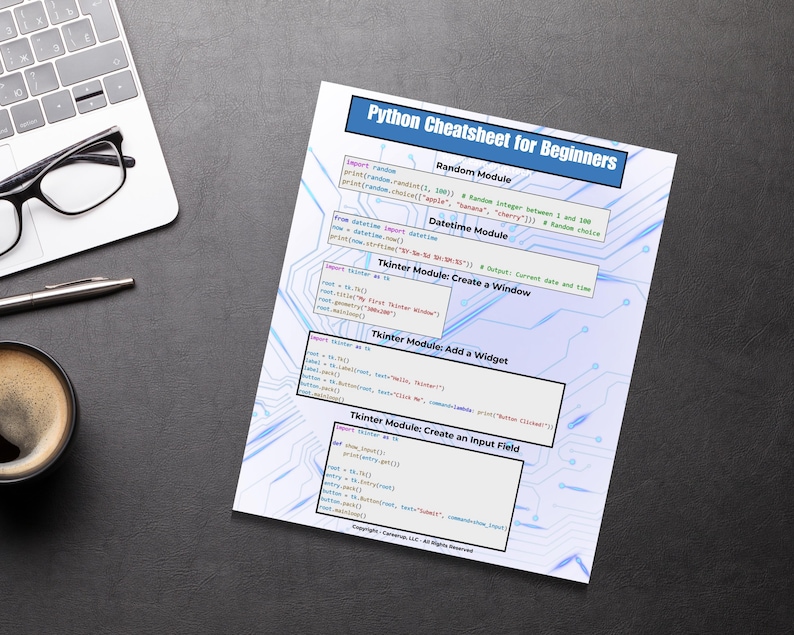 option
Python Cheatsheet for Beginners
Random Module
import random
print(random.randint(1, 100))  # Random integer between 1 and 100
print(random.choice(["apple", "banana", "cherry"]))  # Random choice
Datetime Module
from datetime import datetime
now = datetime.now()
print(now.strftime("%Y-%m-%d %H:%M:%S"))  # Output: Current date and time
Tkinter Module: Create a Window
import tkinter as tk
root = tk.Tk()
root.title("My First Tkinter Window")
root.geometry("300x200")
root.mainloop()
Tkinter Module: Add a Widget
import tkinter as tk
root = tk.Tk()
label = tk.Label(root, text="Hello, Tkinter!")
label.pack()
button = tk.Button(root, text="Click Me", command=lambda: print("Button Clicked!"))
button.pack()
root.mainloop()
Tkinter Module: Create an Input Field
import tkinter as tk
def show_input():
    print(entry.get())
root = tk.Tk()
entry = tk.Entry(root)
entry.pack()
button = tk.Button(root, text="Submit", command=show_input)
button.pack()
root.mainloop()
Copyright - Careerup, LLC - All Rights Reserved